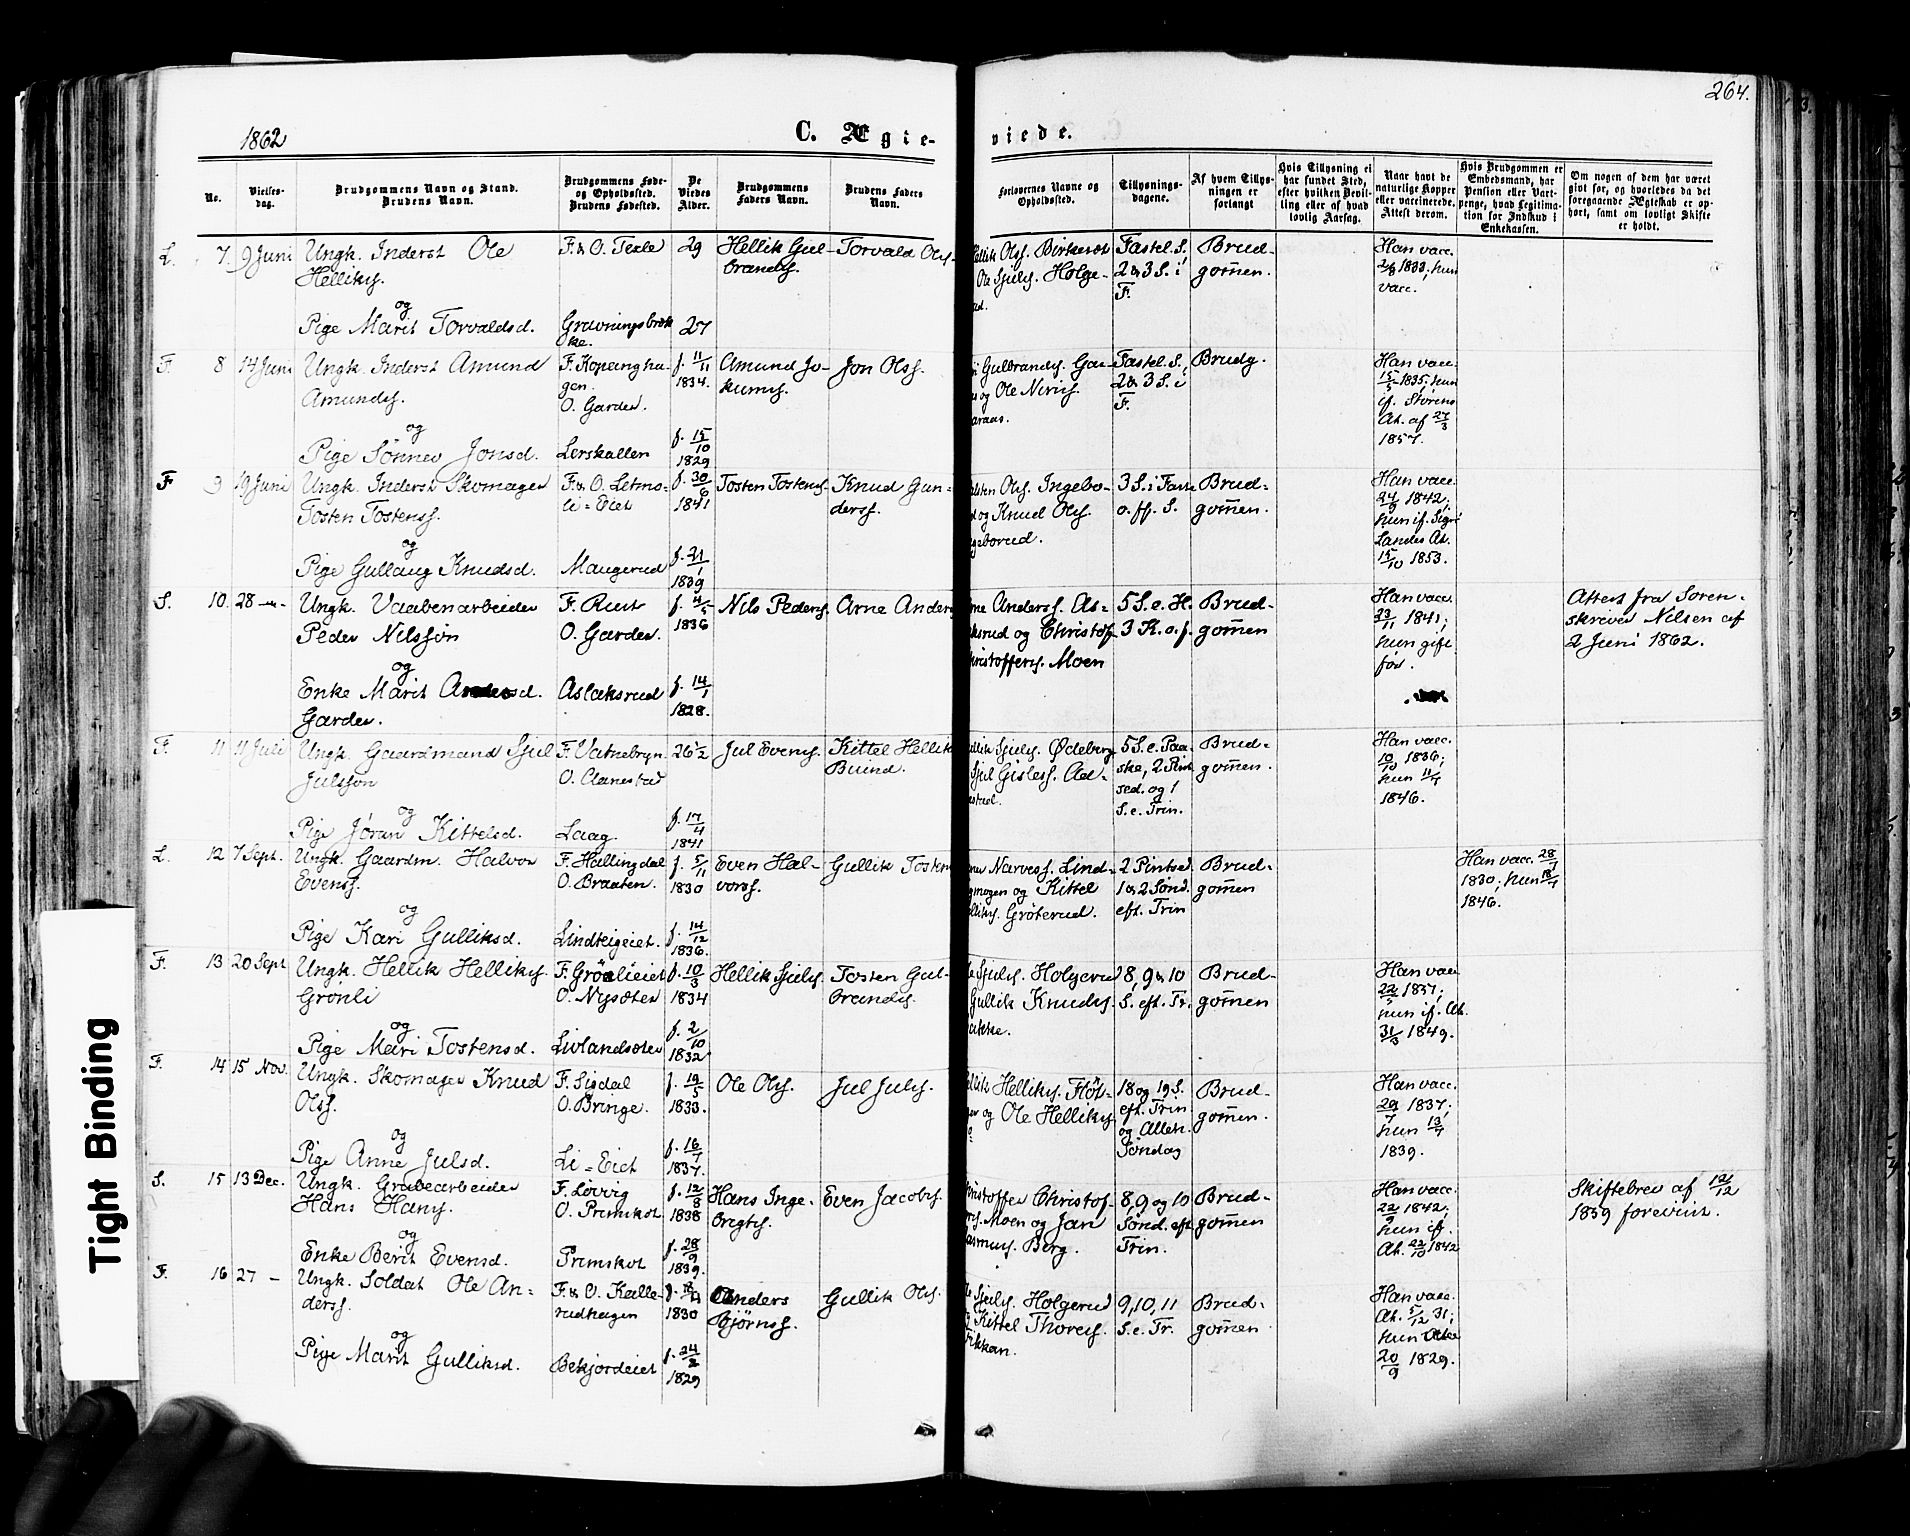 264.
1862
C. Ægte-
viede.
No.
Vielses-
dag.
Brudgommens Navn og Stand.
Brudens Navn.
Brudgommens Føde-
og Opholdssted.
Brudens Fødested.
De
Viedes
Alder.
Brudgommens
Faders Navn.
Brudens Faders
Navn.
Forlovernes Navne og
Opholdssted.
Tillysnings-
dagene.
Af hvem Tillys-
ningen er
forlangt
Hvis Tillysning ei
har fundet Sted,
efter hvilken Bevil-
ling eller af hvad
lovlig Aarsag.
Naar havt de
naturlige Kopper
eller vaccinerede.
Attest derom.
Hvis Brudgommen er
Embedsmand, har
Pension eller Vart-
penge, hvad Legitima-
tion for Indskud i
Enkekassen.
Om nogen af dem har været
gift før, og hvorledes da det
foregaaende Ægteskab er op-
hørt, samt om lovligt Skifte
er holdt.
L. 7. 9 Juni Ungk. Inderst Ole
Helliks.
og
Pige Marit Torvaldsd.
F. & O. Texle
Gravningsbrek
ke.
29
27
Hellik Gul-
brands.
Torvald Ols.
Hellik Ols. Birkerdt
Ole Sjuls. Holge-
rud.
Fastel. S.,
2 & 3 S. i
F.
Brud-
gommen.
Han vacc.
1833, hun
vacc.
F. 8 14 Juni Ungk. Inderst Amund
Amunds.
og
Pige Sønnev Jonsd.
F. Kopeinghu-
gen.
O. Garder.
Lerskallen
f. 11/11
1834.
f. 15/10
1829
Amund Jo-
kums.
Jon Ols.
Gulbrands. Gar-
og Ole Niris.
araas.
Fastel. S.,
2 & 3 S. i
F.
Brudg.
Han vacc.
15/5 1835, hun
if. Størens
At. af 27/3
1857.
F 9 19 Juni Ungk. Inderst Skomager
Tosten Tostens.
og
Pige Gullaug Knudsd.
F. & O. Letmo-
li-Eiet
Maugerud
f. 30/6
1841
f. 21/1
1839
Tosten Tostens.
Knud Gun-
ders.
Ols. Ingebo-
og Knud Ols.
Ingeborud.
3 S. i Faste
o. ff. S.
Brud-
gommen.
Han vacc.
24/9 1842;
hun if. Sigr
Landes At.
15/10 1853.
S. 10. 28 Ungk. Vaabenarbeider
Peder Nilssøn
og
Enke Marit Andersd.
Garder.
F. Rust
O. Garder.
Aslaksrud
f. 4/5
1836
f. 14/1
1828.
Nils Peders.
Arne Anders
Arne Anders. As-
laksrud og Christof-
Christoffers. Moen
5 S. e. H.
3 K. o. f.
Brud-
gommen
Han vacc.
23/11 1841;
hun gift
før.
Attest fra Soren-
skriver Nilsen af
2 Juni 1862.
F. 11 11 Juli Ungk. Gaardmand Sjul
Julssøn
og
Pige Jøran Kittelsd.
F. Vatnebryn
O. Aanestad
Laag.
26½
f. 17/4
1841
Jul Evens.
Kittel Hellik
Buind.
Hellik Sjuls. Ødeberg
Sjul Gisles. Aa-
nestad.
5 S. e. Paa-
ske, 2 Pint
sed. og 1
S. e. Trin.
Brud-
gommen.
Han vacc.
10/10 1836;
hun 11/7
1846.
L. 12 7 Sept. Ungk. Gaardm. Halvor
Evens.
og
Pige Kari Gulliksd.
F. Hallingdal
O. Braaten.
Lindteigeiet.
f. 5/11
1830
f. 14/12
1836.
Even Hal-
vors.
Gullik Tosten
Narves. Lind-
mogen og Kittel
Helliks. Grøterud.
2 Pintsed
1 & 2 Sønd.
eft. Trin
Brud-
gommen
Han vacc. 28/7
1830; hun 18/7
1846.
F. 13 20 Sept Ungk. Hellik Helliks.
Grønli
og
Pige Mari Tostensd.
F. Grønlieiet
O. Nysæter
Livlandsæter
f. 10/3
1834
f. 2/10
1832
Hellik Sjuls.
Tosten Gul-
brands.
Ole Sjuls. Holgerud
Gullik Knuds.
akke.
8, 9 & 10
S. eft. Tr.
Brud-
gommen
Han vac
1837;
hun if. At.
31/3 1849.
F. 14 15 Nov. Ungk. Skomager Knud
Ols.
og
Pige Anne Julsd.
F. Sigdal
O. Bringe.
Li-Eiet
f. 19/5
1833.
f. 16/7
1837.
Ole Ols.
Jul Juls.
Hellik Helliks. Fløt-
er og Ole Helliks.
18 og 19 S.
eft. Trin
og Alleh.
Søndag
Brud-
gommen.
Han vacc.
29/7 1837;
hun 13/7
1839.
S. 15 13 Dec. Ungk. Grubearbeider
Hans Hans.
og
Enke Berit Evensd.
F. Løvvig
O. Primskot
Primskot
f. 12/8
1838
f. 28/9
1839.
Hans Inge-
brigts.
Even Jacobs.
Christoffer Christof-
fers. Moen og Jan
Rasmus. Berg.
8, 9 og 10
Sønd. eft
Trin.
Brud-
gommen
Han vacc.
22/9 1842;
hun if.
At. 22/10 1842
Skiftebrev af 12/12
1859 forevist.
F. 16 27 – Ungk. Soldat Ole An-
ders.
og
Pige Marit Gulliksd.
F. & O. Kalle-
rudhagen
Bekjordeiet
1830
f. 24/2
1829
Anders
Bjørns.
Gullik Ols.
Ole Sjuls. Holgerud
Kittel Thores.
ikkan.
9, 10, 11
S. e. Tr.
Brud-
gommen
Han vacc.
At. 5/12 31;
hun
20/9 1829.
Tight Binding